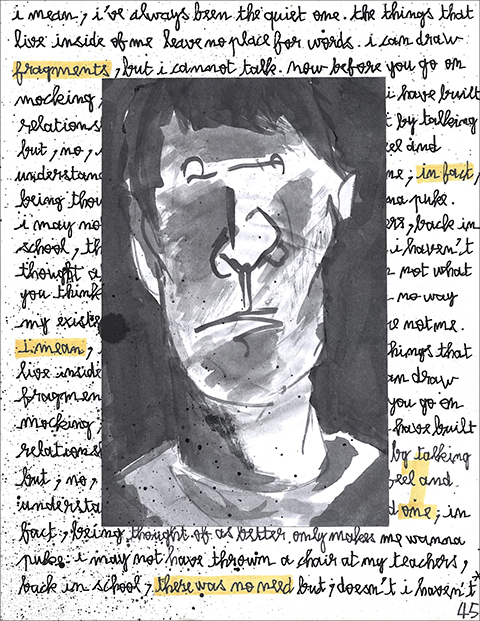 i mean, i've always been the quiet one. the things that
live inside of me leave no place for words. i can draw
fragments, but i cannot talk. now before you go on
mocking, i have built
relations t by talking
but, no, eel and
understand me; in fact,
being thou na puke.
i may no ers, back in
school, th i haven't
thought a not what
you think no way
my existe e not me.
i mean, things that
live inside an draw
fragmen you go on
mocking, have built
relations by talking
but, no, feel and
understa d one; in
fact, being thought of as better only makes me wanna
puke. i may not have thrown a chair at my teachers,
back in school, there was no need but, doesn't i haven't
45